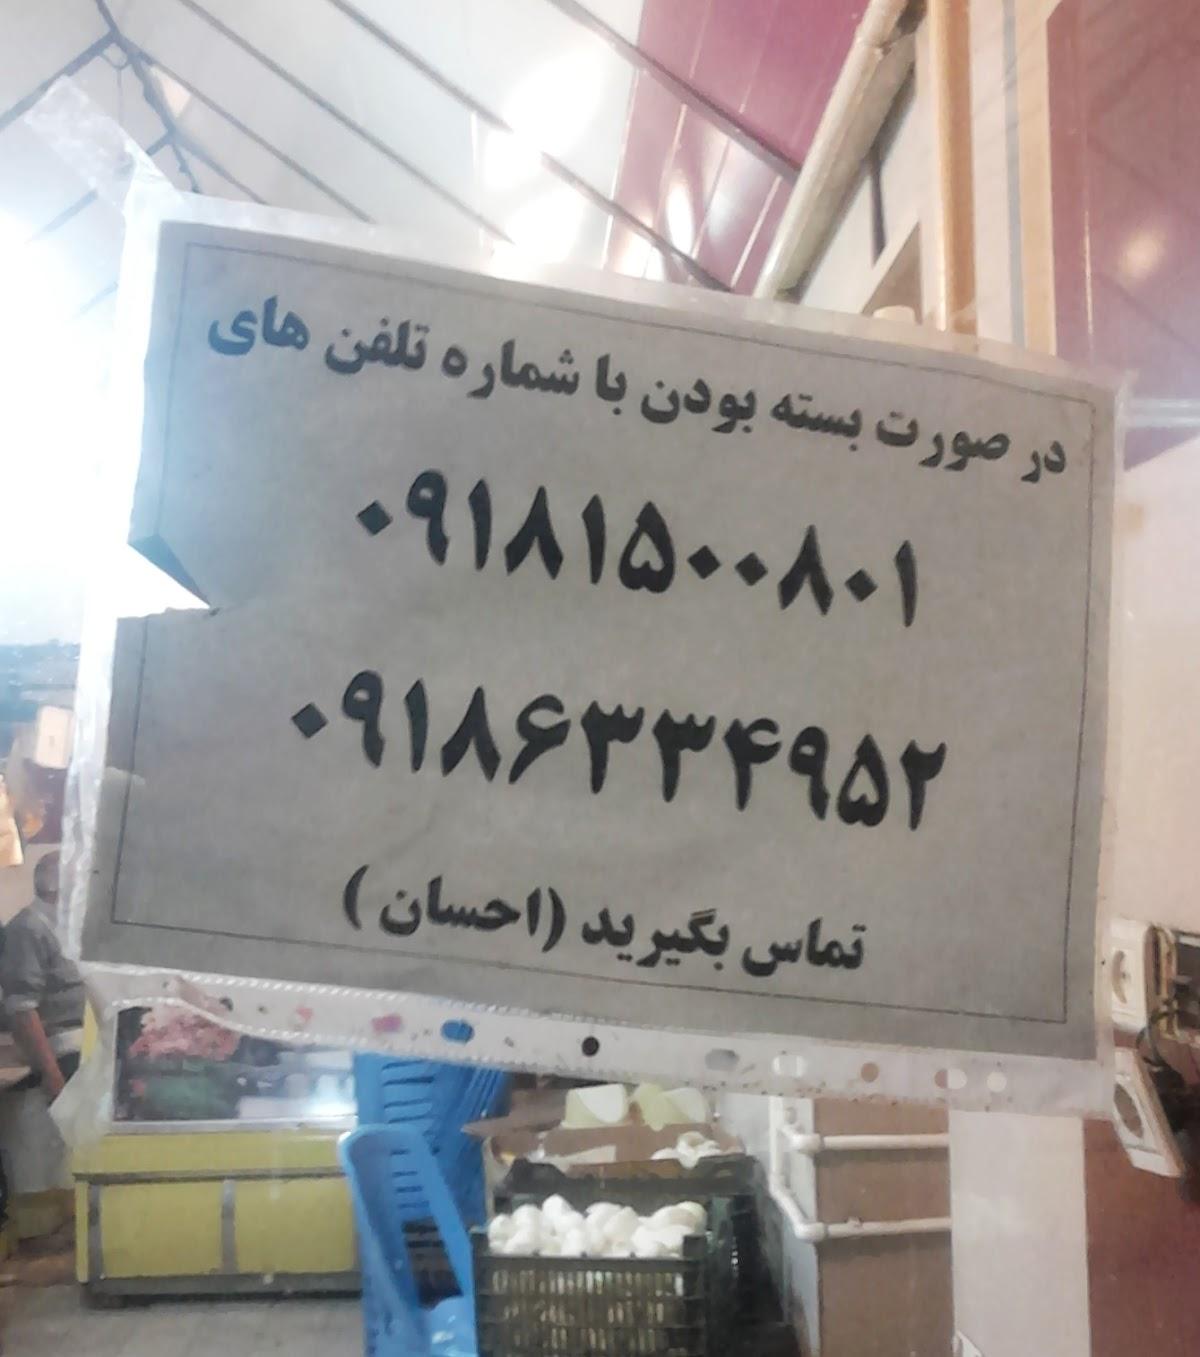 در صورت بسته بودن با شماره تلفن های
۰۹۱۸۱۵۰۰۸۰۱
۰۹۱۸۶۳۳۴۹۵۲
تماس بگیرید (احسان )